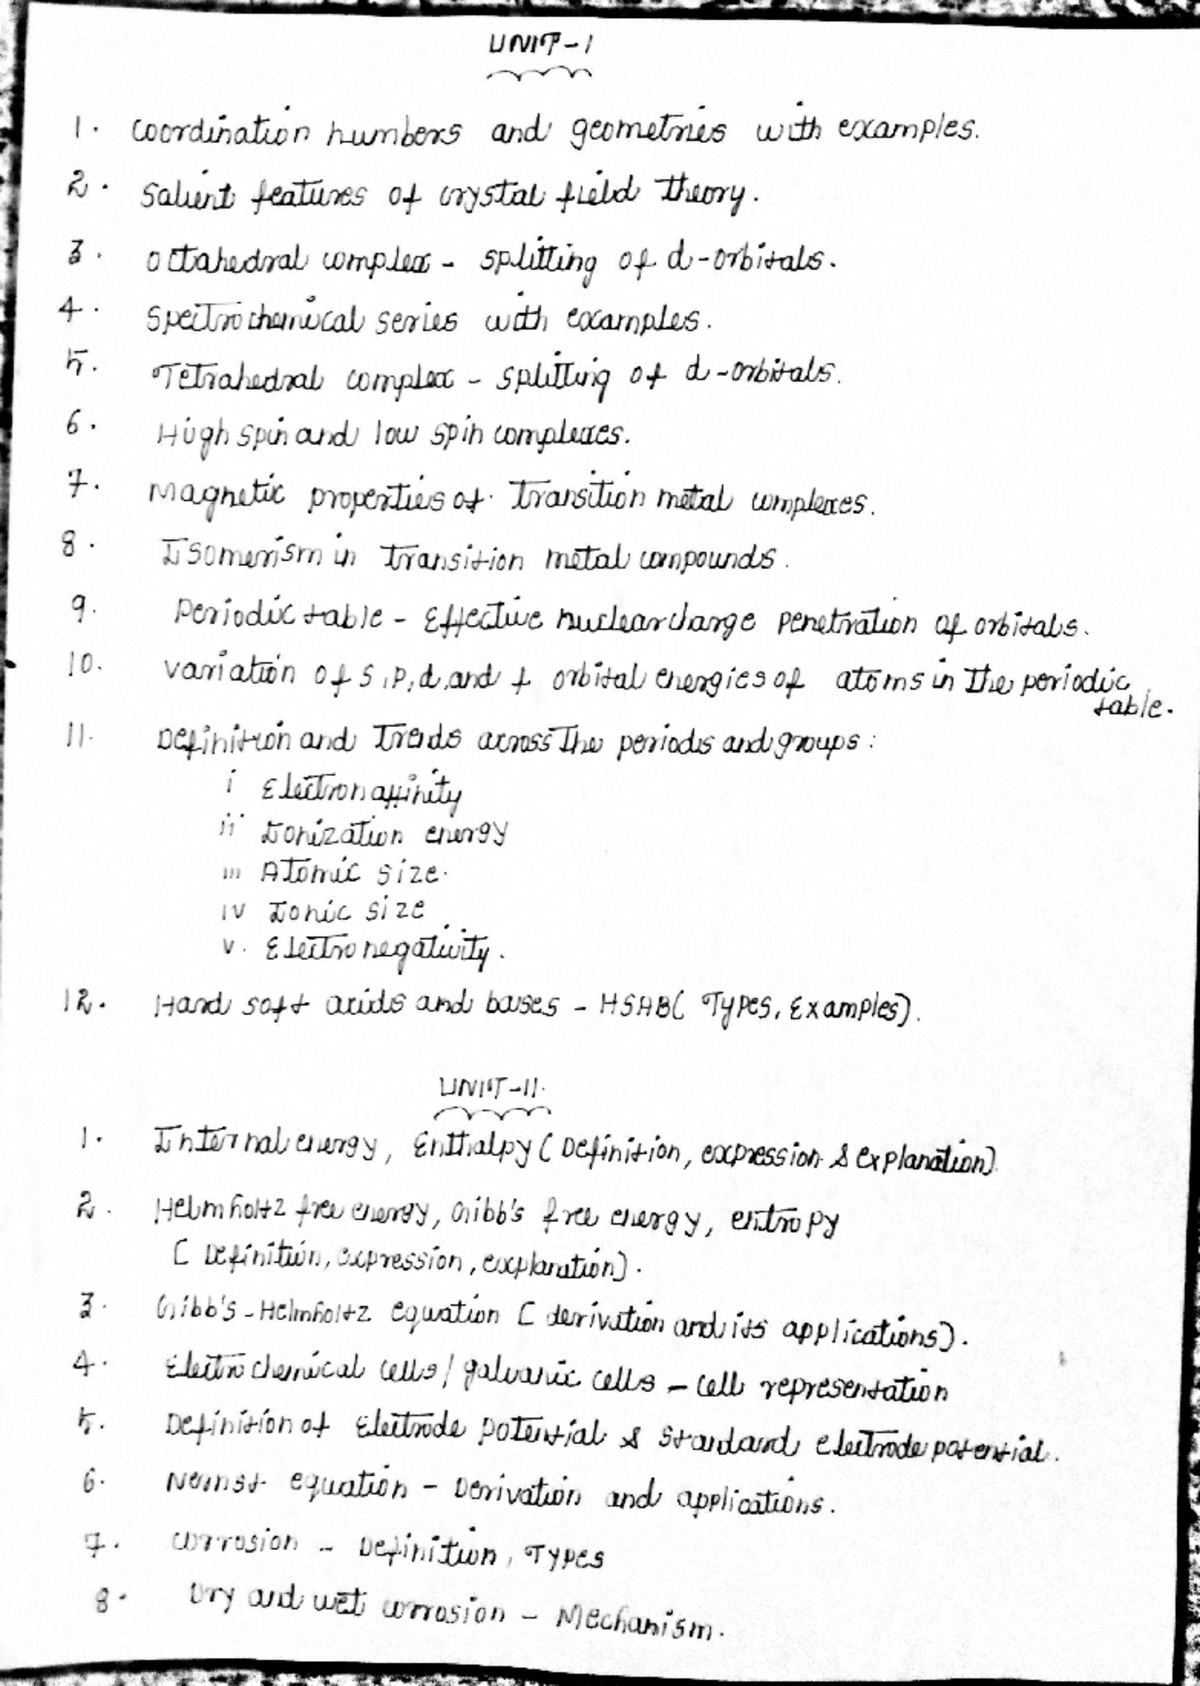 UNIT-I
1. Coordination numbers and geometries with examples.
2. Salient features of crystal field theory.
3. Octahedral complex - splitting of d-orbitals.
4. Spectrochemical series with examples.
5. Tetrahedral complex - splitting of d-orbitals.
6. High spin and low spin complexes.
7. Magnetic properties of transition metal complexes.
8. Isomerism in transition metal compounds.
9. Periodic table - Effective nuclear charge penetration of orbitals.
10. Variation of s, p, d, and f orbital energies of atoms in the periodic
table.
11. Definition and trends across the periods and groups:
i Electron affinity
ii Ionization energy
iii Atomic size.
iv Ionic size
v. Electronegativity.
12. Hard soft acids and bases - HSAB( Types, Examples).
UNIT-II.
1. Internal energy, Enthalpy ( Definition, expression & explanation)
2. Helmholtz free energy, Gibb's free energy, entropy
( Definition, expression, explanation).
3. Gibb's-Helmholtz equation ( derivation and its applications).
4. Electrochemical cells/ galvanic cells - cell representation
5. Definition of Electrode potential & Standard electrode potential.
6. Nernst equation - Derivation and applications.
7. Corrosion - Definition, Types
8. Dry and wet corrosion - Mechanism.